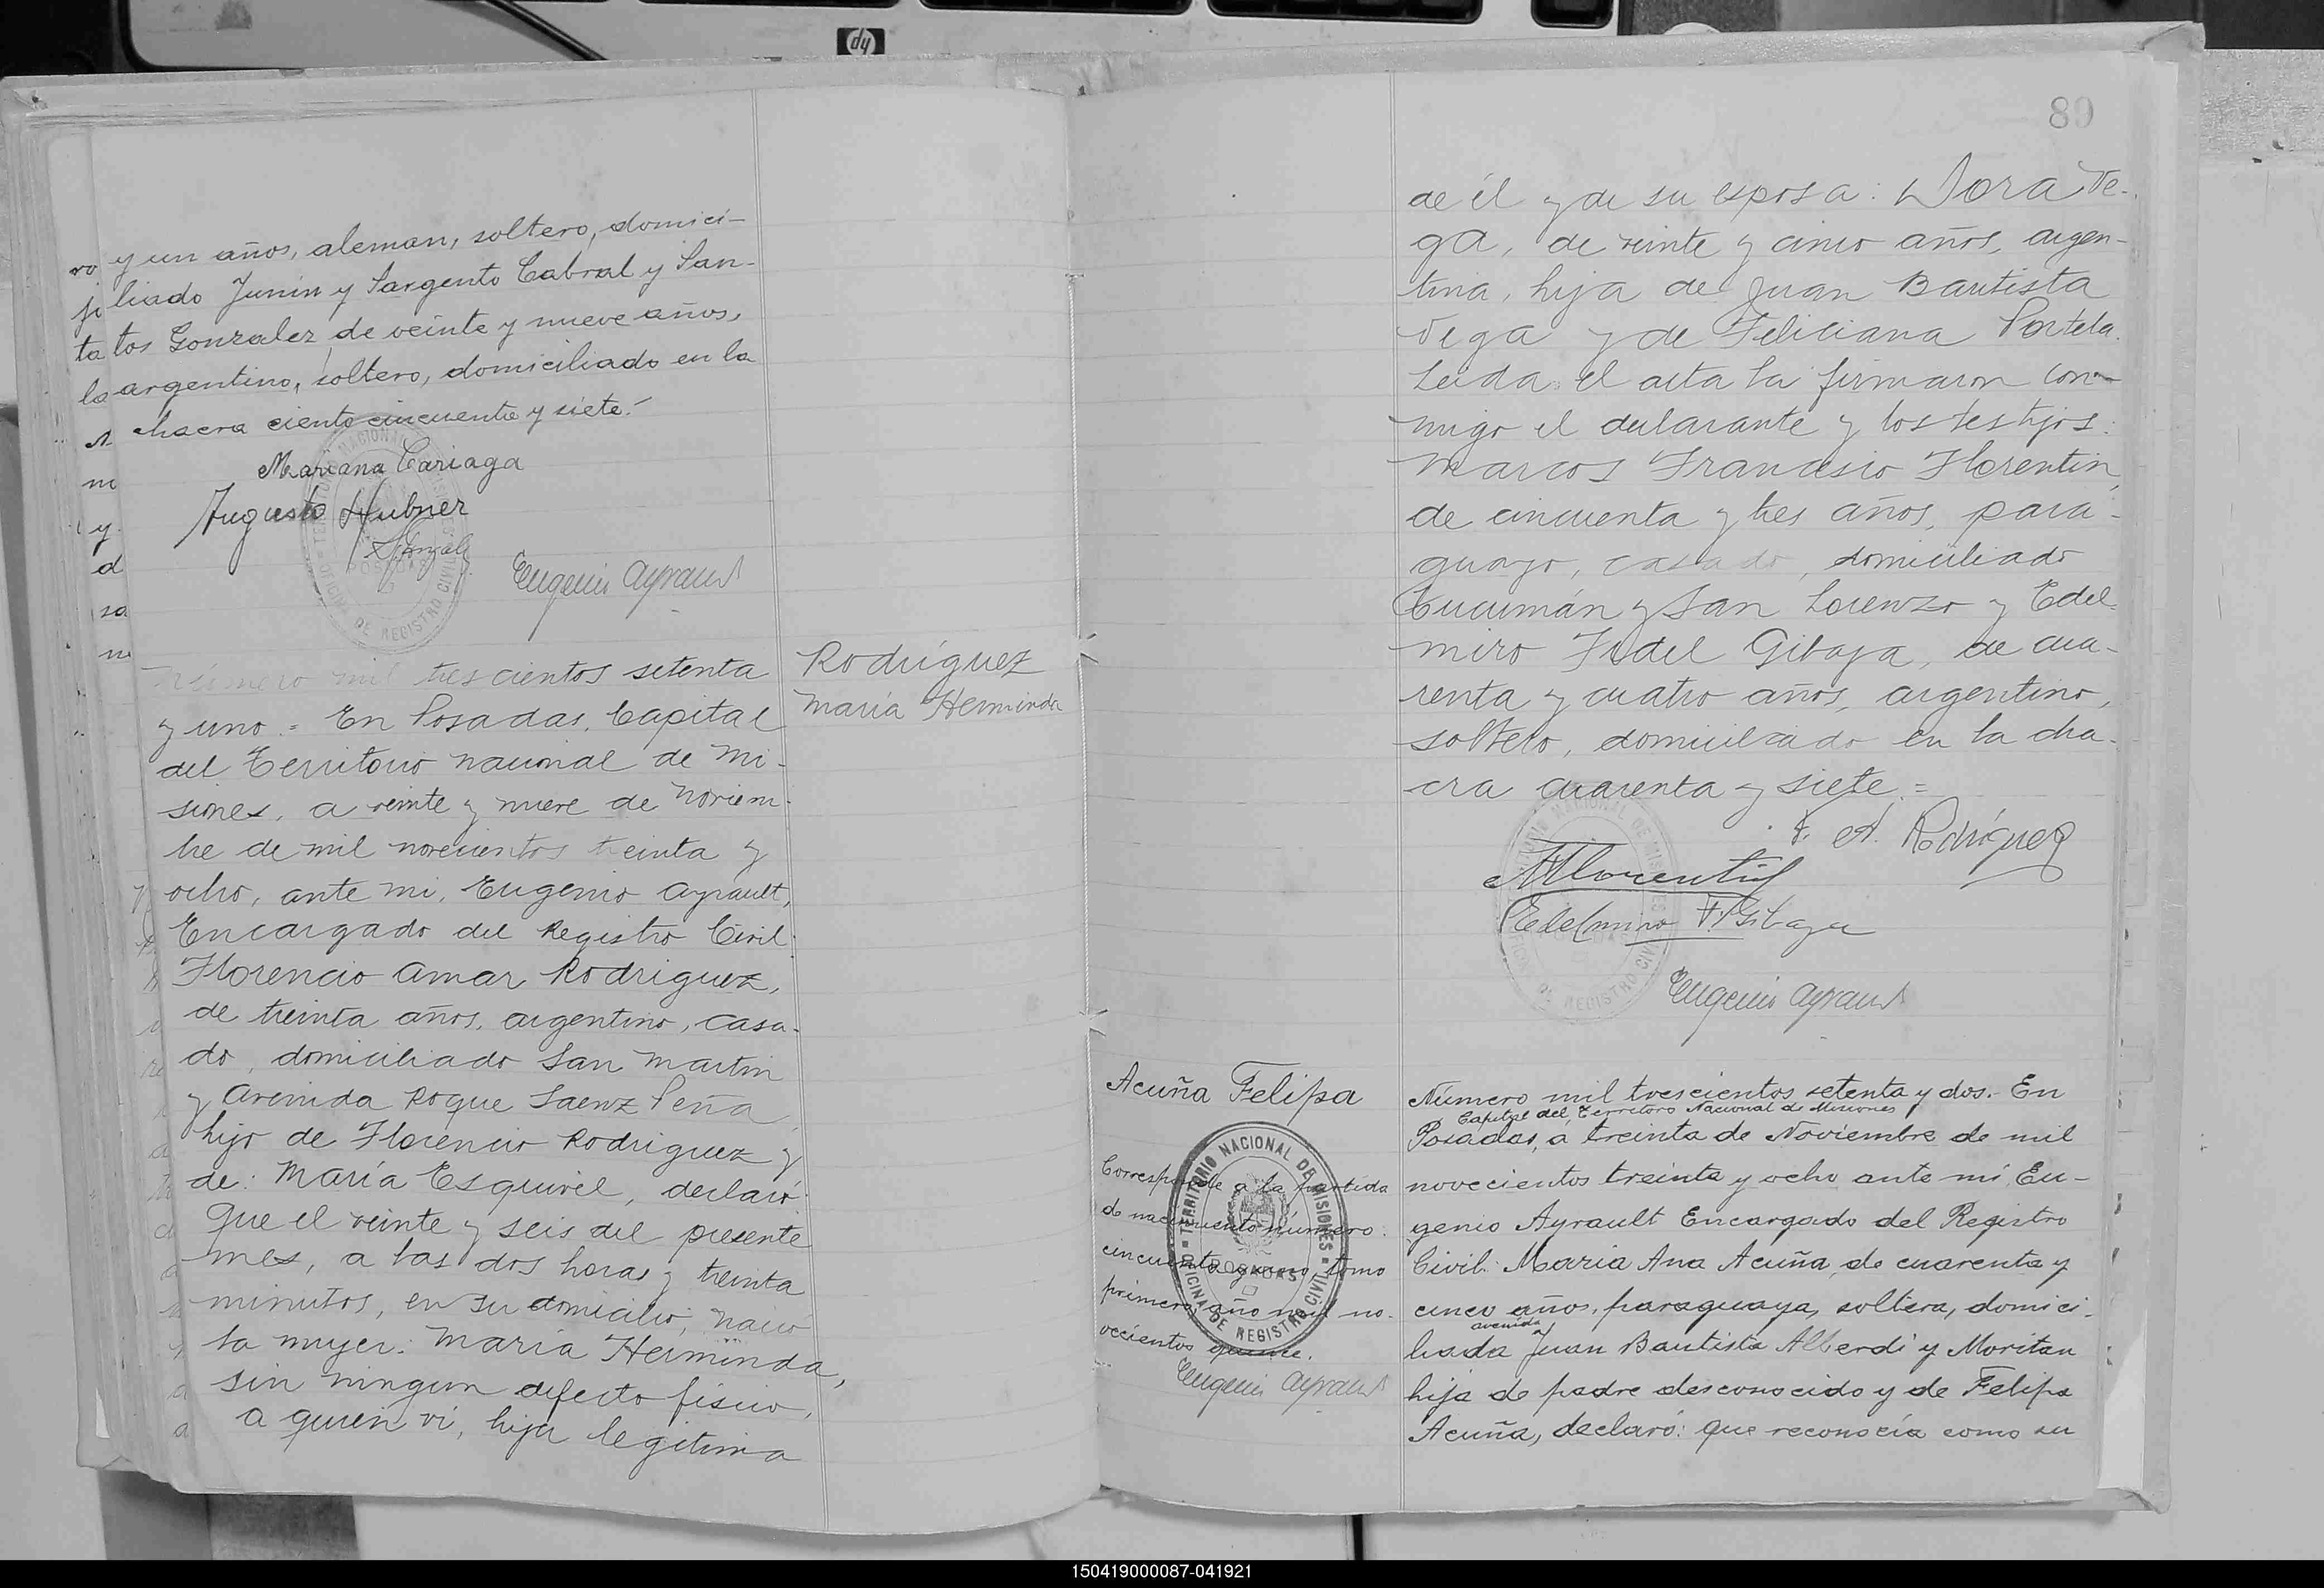 y un años, aleman, soltero, domici-
liado Junin y Sargento Cabral y San-
tos Gonzalez de veinte y nueve años,
argentino, soltero, domiciliado en la
chacra ciento cincuenta y siete.-
Mariana Cariaga
Augusto Hubner
Eugenio Ayrault
Número mil trescientos setenta
y uno = En Posadas, Capital
del Territorio Nacional de Mi-
siones, a veinte y nueve de noviem-
bre de mil novecientos treinta y
ocho, ante mi, Eugenio Ayrault,
Encargado del Registro Civil:
Florencio Amar Rodriguez,
de treinta años, argentino, casa-
do, domiciliado San Martin
y Avenida Roque Saenz Peña
hijo de Florencio Rodriguez y
de: María Esquivel, declaró:
Que el veinte y seis del presente
mes, a las dos horas y treinta
minutos, en su domicilio, nació
la mujer: María Herminda,
sin ningun defecto fisico,
a quien ví, hija legitima
Rodríguez
María Herminda
89
de él y de su esposa: Dora Ve-
ga, de veinte y cinco años, argen-
tina, hija de Juan Bautista
Vega y de Feliciana Portela.
Leida el acta la firmaron con-
migo el declarante y los testigos:
Marcos Francisco Florentin,
de cincuenta y tres años, para-
guayo, casado, domiciliado
Tucumán y San Lorenzo y Edel-
miro Fidel Gibaja, de cua-
renta y cuatro años, argentino,
soltero, domiciliado en la cha-
cra cuarenta y siete.=
F. A. Rodríguez
MFlorentin
Edelmiro F. Gibaja
Eugenio Ayrault
Acuña Felipa
Corresponde a la partida
de nacimiento número
cincuenta y uno, tomo
primero, año mil no-
vecientos quince.
Eugenio Ayrault
TERRITORIO NACIONAL DE MISIONES
POSADAS
OFICINA DE REGISTRO CIVIL
Número mil trescientos setenta y dos.- En
Capital del Territoro Nacional de Misiones
Posadas, a treinta de Noviembre de mil
novecientos treinta y ocho ante mí, Eu-
genio Ayrault Encargado del Registro
Civil: Maria Ana Acuña, de cuarenta y
cinco años, paraguaya, soltera, domici-
avenida
liada Juan Bautista Alberdi y Moritan
hija de padre desconocido y de Felipa
Acuña, declaró: que reconocía como su
150419000087-041921